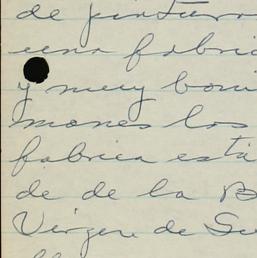 de pintura
una fabric
y muy boni
mones los
fabrica está
de de la B
Virgen de Su